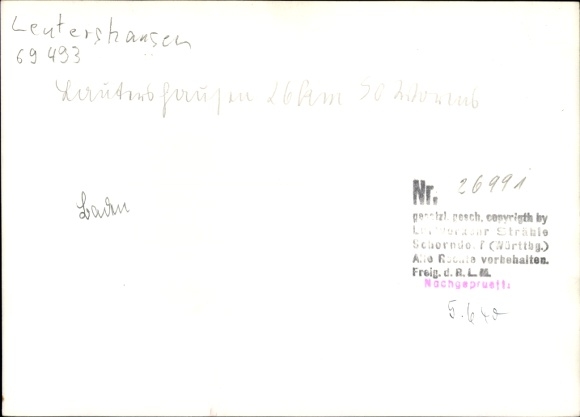 Leutershausen
69 493
Lautershausen 26 km SO Worms
Baden
Nr. 26991
gesetzl. gesch. copyrigth by
Luftverkehr Strähle
Schorndorf (Württbg.)
Alle Rechte vorbehalten.
Freig. d. R. L. M.
Nachgeprueft:
5.6.40